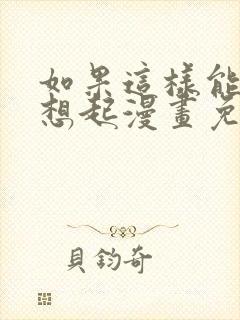 如果這樣能
想起漫畫免
貝鈞奇